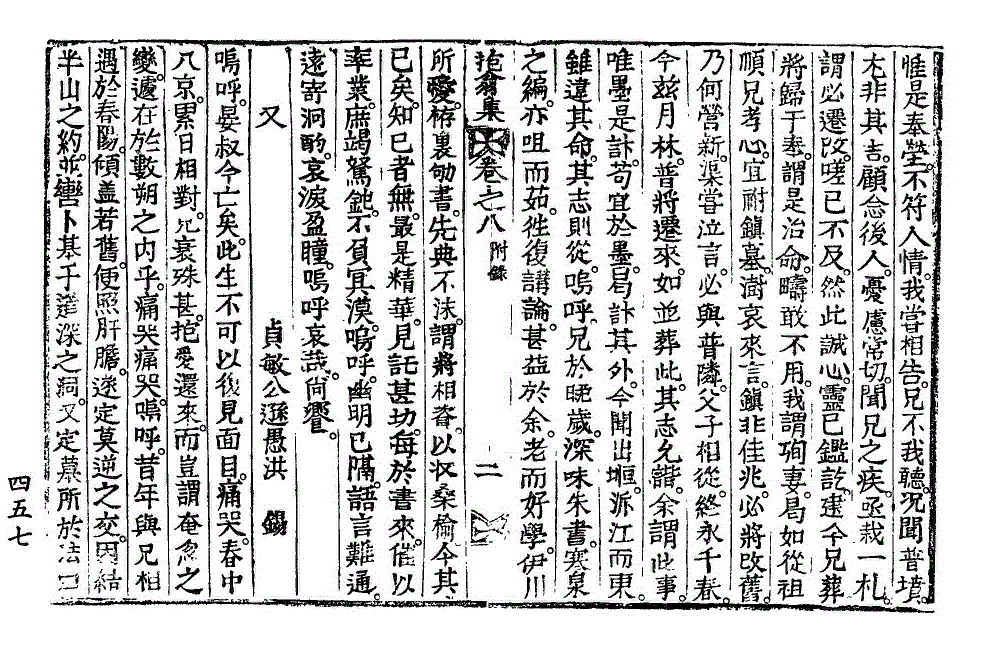 惟是奉塋。不符人情。我嘗相告。兄不我聽。况聞普墳。
尤非其吉。顧念後人。憂慮常切。聞兄之疾。亟裁一札。
謂必遷改。嗟已不及。然此誠心。靈已鑑訖。逮今兄葬
將歸于奉。謂是治命。疇敢不用。我謂殉妻。曷如從祖
順兄孝心。宜祔鎭墓。澍哀來言。鎭非佳兆。必將改舊。
乃何營新。渠嘗泣言。必與普隣。父子相從。終永千春。
今玆月林。普將遷來。如並葬此。其志允諧。余謂此事
唯墨是訃。苟宜於墨。曷訃其外。今聞出垣。派江而東。
雖違其命。其志則從。嗚呼。兄於晩歲。深味朱書。寒泉
之編。亦咀而茹。徃復講論。甚益於余。老而好學。伊川
抱翁集 卷之八 附錄 二
所愛。栫裏劬書。先典不沬。謂將相沓。以收桑楡。今其
已矣。知已者無。最是精華。見託甚功。每於書來。催以
卒業。庶竭駑鈍。不負冥漠。嗚呼。幽明已隔。語言難通。
遠寄泂酌。哀淚盈瞳。嗚呼哀哉。尙饗。
又 貞敏公遜愚洪 錫
嗚呼。晏叔今亡矣。此生不可以復見面目。痛哭。春中
入京。累日相對。兄衰殊甚。抱憂還來。而豈謂奄忽之
變。遽在於數朔之內乎。痛哭痛哭。嗚呼。昔年與兄相
遇於春陽。傾盖若舊。便照肝膽。遂定莫逆之交。因結
半山之約。並轡卜基于蓮深之洞。又定墓所於法
四五七